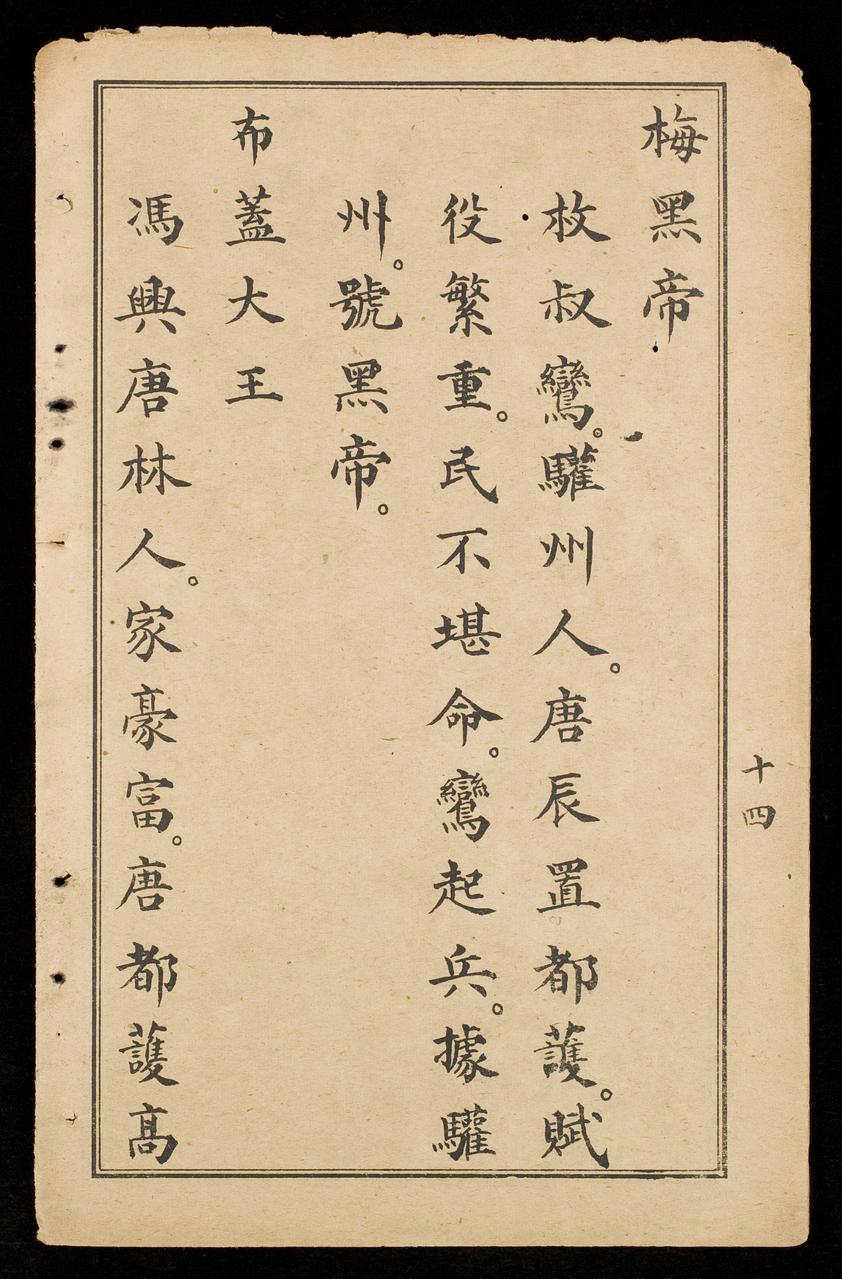 梅黑帝
枚叔鸞。驩州人。唐辰置都護。賦
役繁重。民不堪命。鸞起兵。據驩
州。號黑帝。
布蓋大王
馮興唐林人。家豪富。唐都護高
十四